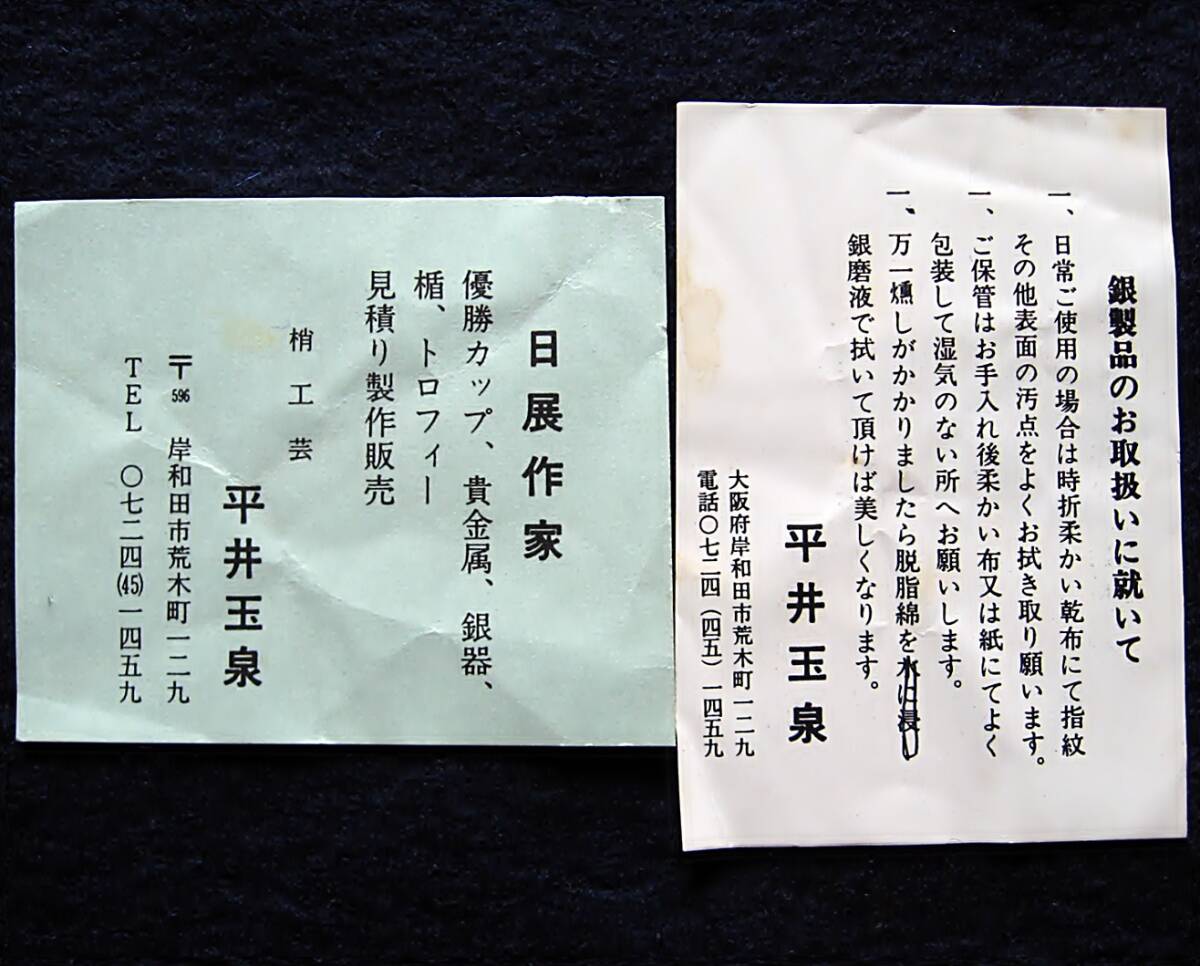 銀製品のお取扱いに就いて
一、日常ご使用の場合は時折柔かい乾布にて指紋
その他表面の汚点をよくお拭き取り願います。
一、ご保管はお手入れ後柔かい布又は紙にてよく
包装して湿気のない所へお願いします。
一、万一燻しがかかりましたら脱脂綿を水に浸し
銀磨液で拭いて頂けば美しくなります。
平井玉泉
大阪府岸和田市荒木町一二九
電話〇七二四(四五)一四五九
日展作家
優勝カップ、貴金属、銀器、
楯、トロフィー
見積り製作販売
梢工芸
平井玉泉
〒596 岸和田市荒木町一二九
TEL 〇七二四(45)一四五九